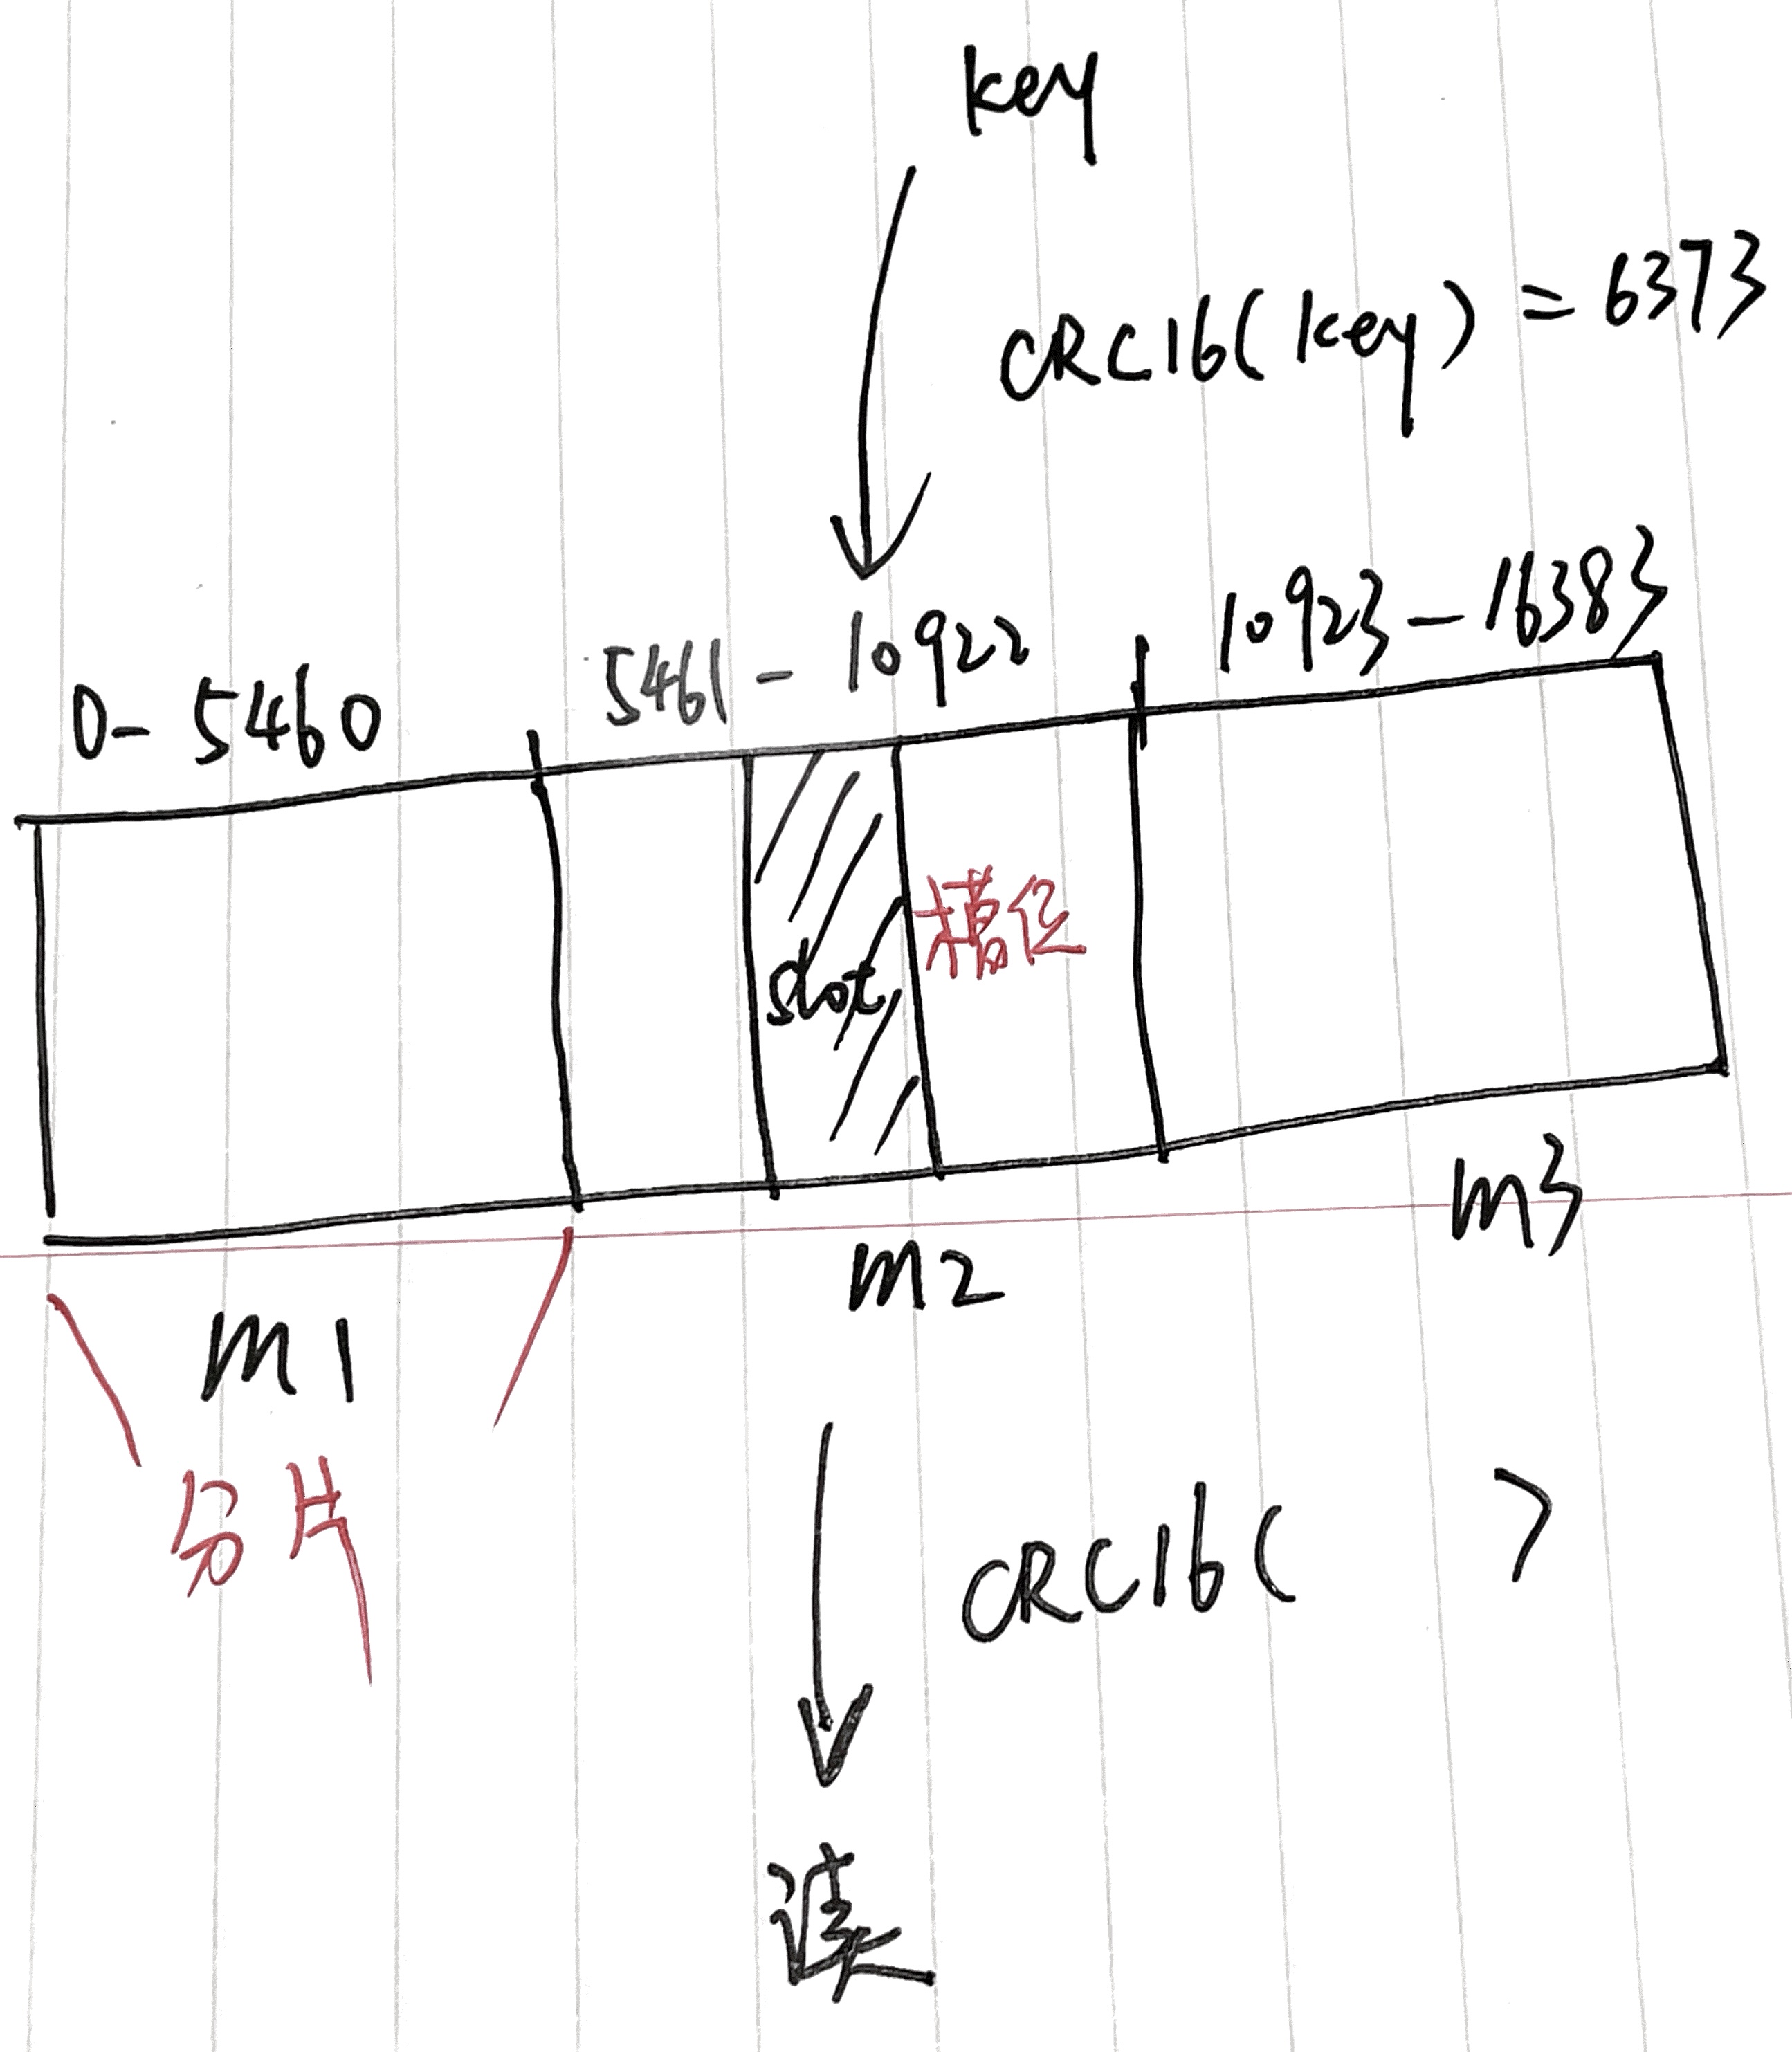 key
CRC16(key) = 6373
0- 5460
5461 - 10922
10923 - 16383
slot
槽位
M1
M2
M3
分片
CRC16( )
读